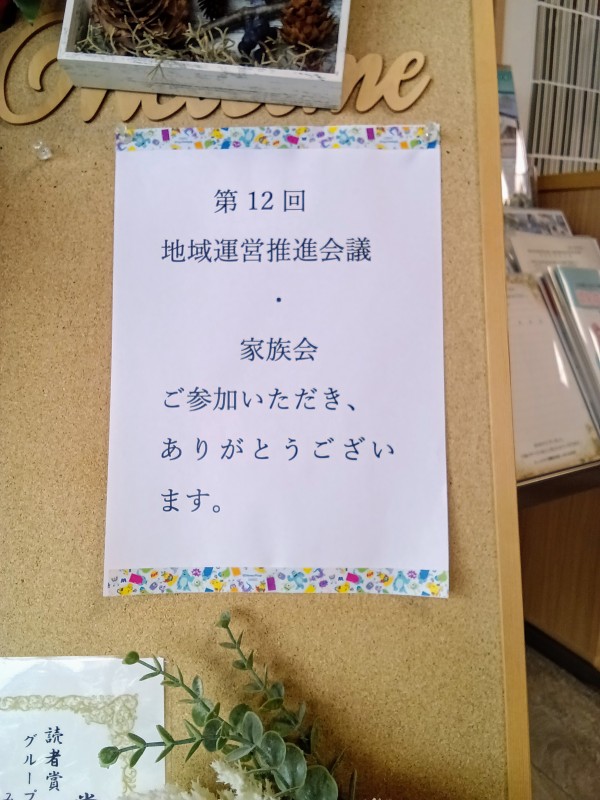 Welcome
第12回
地域運営推進会議
・
家族会
ご参加いただき、
ありがとうござい
ます。
読者賞
グループ